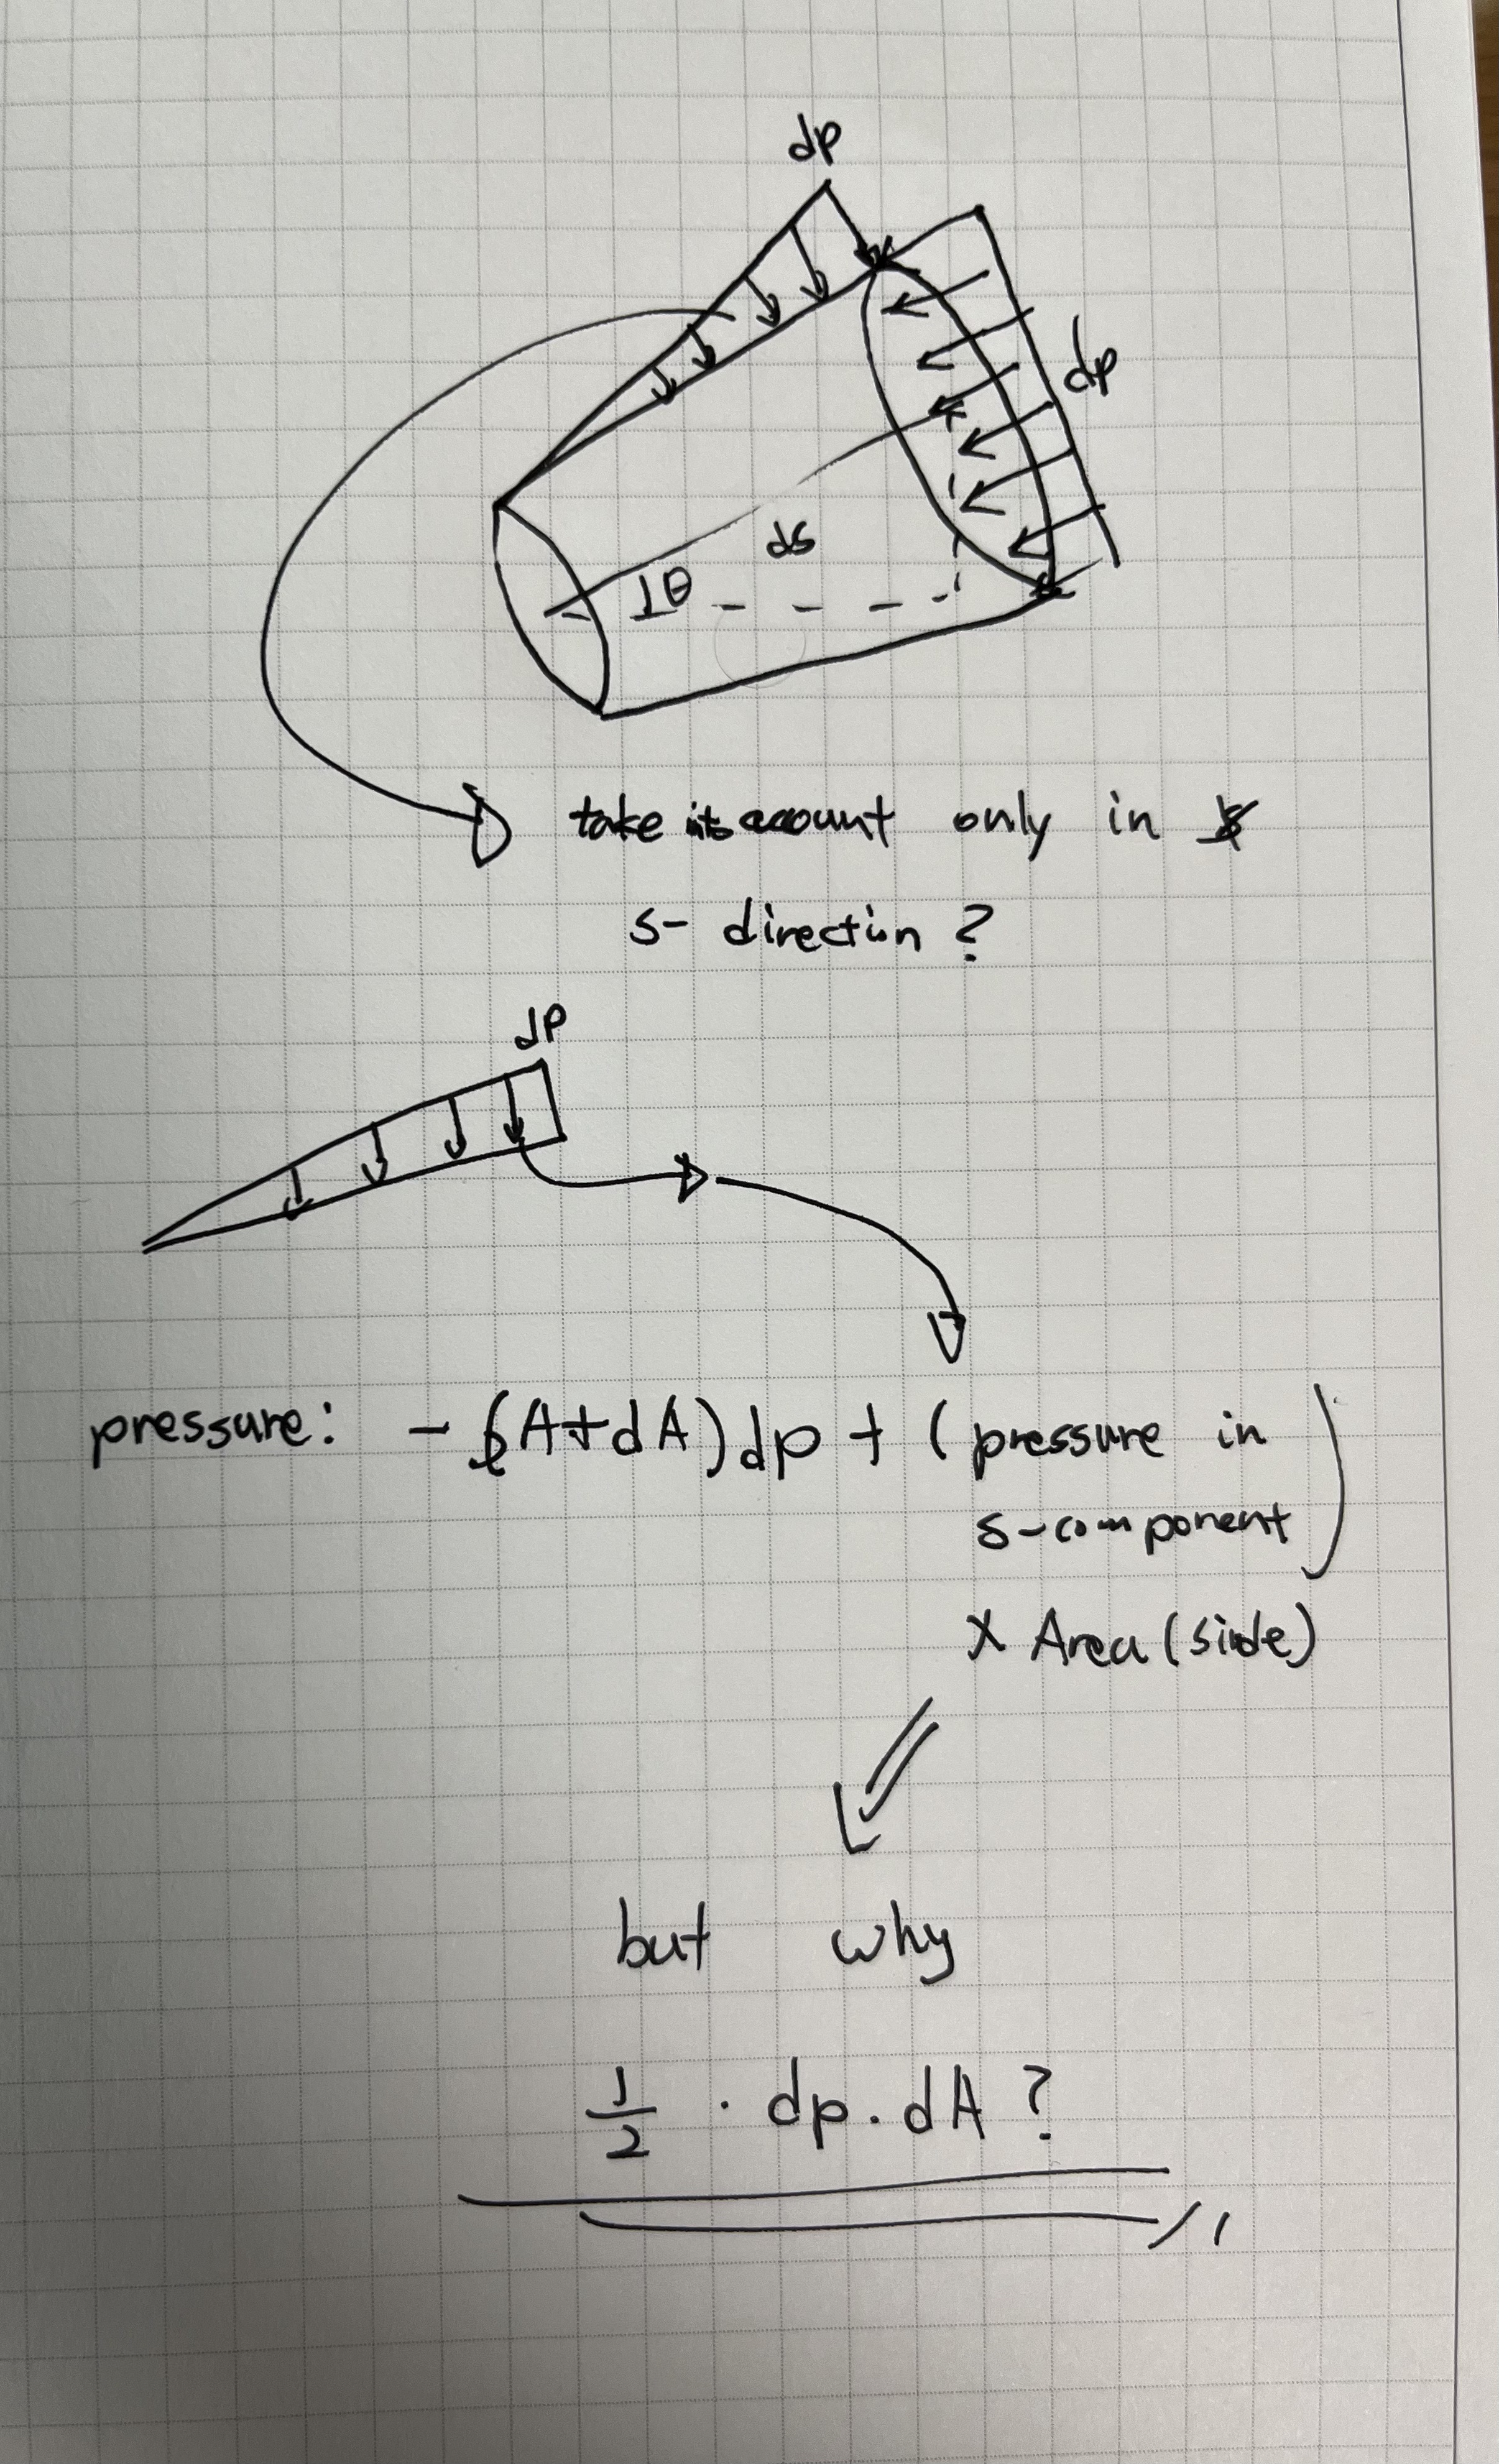 dp
dp
ds
dθ
take into account only in
s- direction ?
dp
pressure: - (A+dA)dp + (pressure in
s-component)
x Area (side)
but why
1/2 · dp · dA ?